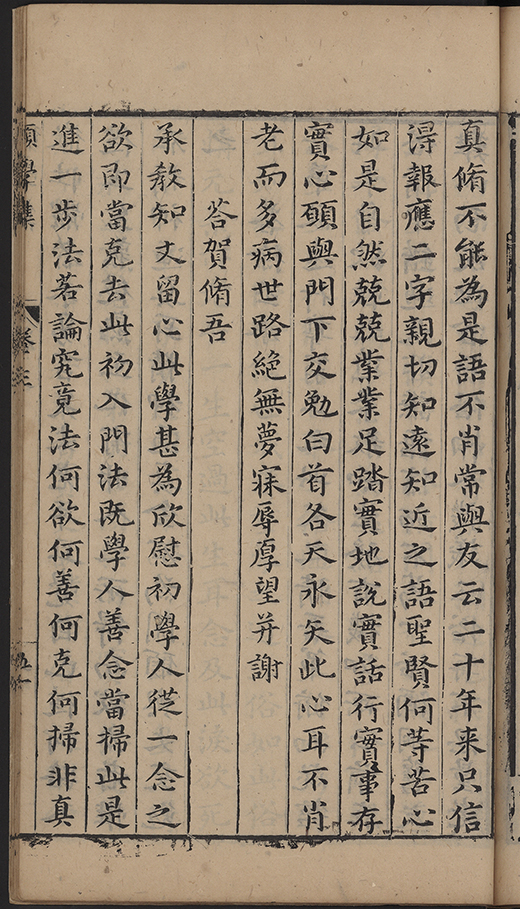 真脩不能為是語不肖常與友云二十年来只信
淂報應二字親切知遠知近之語聖賢何等苦心
如是自然兢兢業業足踏實地說實話行實事存
實心願與門下交勉白首各天永矢此心耳不肖
老而多病世路絕無夢寐辱厚望并謝
答賀脩吾
承教知丈留心此學甚為欣慰初學人從一念之
欲即當克去此初入門法既學人善念當掃此是
進一步法若論究竟法何欲何善何克何掃非真
願學集
卷之三